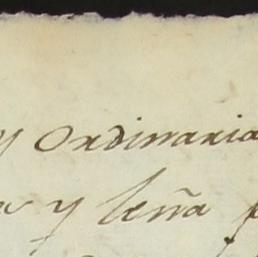 y Ordinaria
y leña